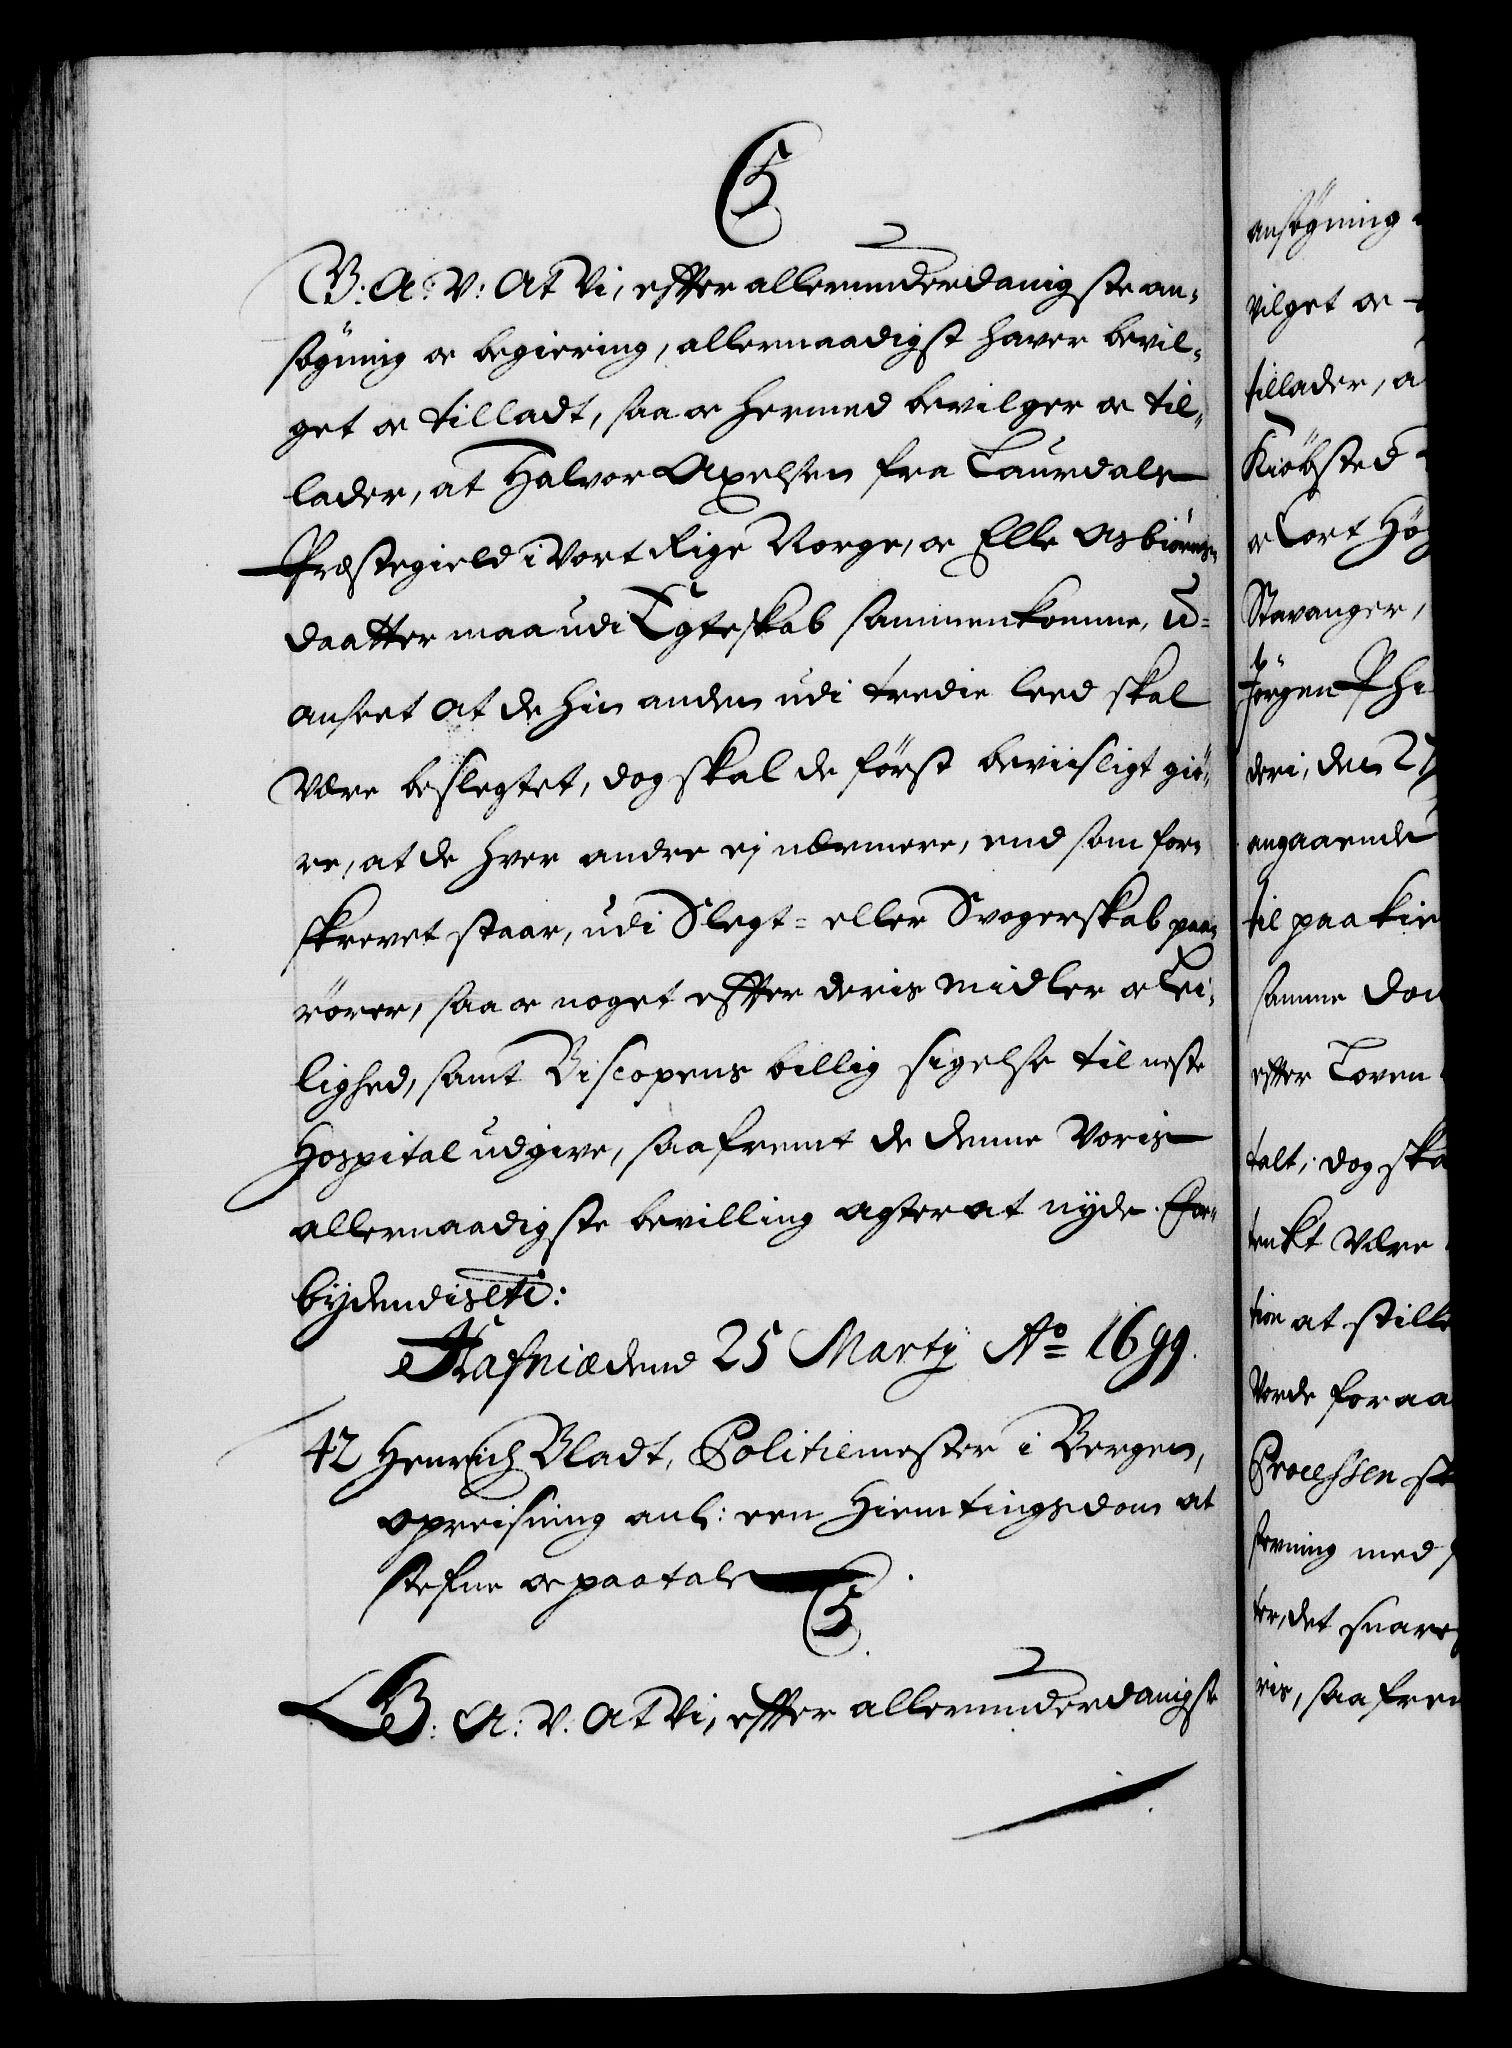 C5
G. A. V. At Vi, effter allerunderdanigste an-
søgning oc begiering, allernaadigst haver bevil-
get oc tilladt, saa oc hermed bevilger oc til-
lader, at Halvor Axelsen fra Laurdals
Præstegield i Vort Rige Norge, oc Elle Asbiørns-
daatter maa udi Egteskab sammenkomme, u-
anseet at de hin anden udi tredie leed skal
være beslegtet, dog skal de først beviisligt giö-
re, at de hver andre ej nærmere, end som for-
skrevet staar, udi Slegt- eller Svogerskab paa-
rörer, saa oc noget effter deris midler oc Lei-
lighed, samt Biscopens billig sigelse til neste
Hospital udgive, saafremt de denne Voris
allernaadigste bevilling agter at nyde. For-
bydendis etc:
Hafniæ dend 25 Martij Ao 1699.
42 Henrich Bladt, Politiemester i Bergen,
opreisning anl: een Hiemtingsdom at
stefne oc paatale
C5.
G: A: V: At Vi, effter allerunderdanigst
ansøgning
vilget oc
tillader, a
Kiöbsted
oc Cort Hög
Stavanger,
Jörgen Phi
deri, den 27
angaaende
til paa Kir
samme Dom
effter Loven
talt, dog ska
tenkt være
tion at stille
Vorde for aa
Processen st
stevning med
ter, det snare
ris, saa frem